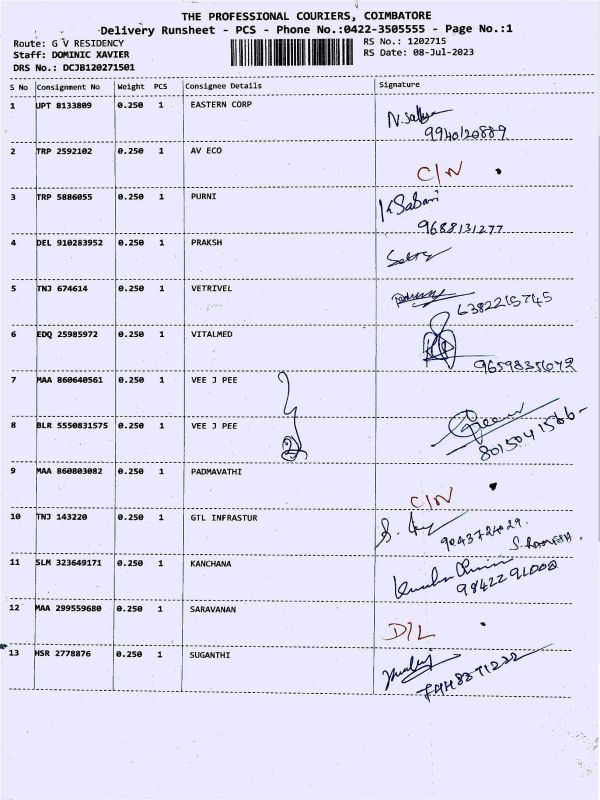 THE PROFESSIONAL COURIERS, COIMBATORE
Delivery Runsheet - PCS - Phone No.:0422-3505555 - Page No.:1
Route: G V RESIDENCY
RS No.: 1202715
Staff: DOMINIC XAVIER
RS Date: 08-Jul-2023
DRS No.: DCJB120271501
S No Consignment No Weight PCS Consignee Details Signature
1 UPT 8133809 0.250 1 EASTERN CORP
9940120889
2 TRP 2592102 0.250 1 AV ECO
C/N
3 TRP 5886055 0.250 1 PURNI
K Sabari
9688131277
4 DEL 910283952 0.250 1 PRAKSH
5 TNJ 674614 0.250 1 VETRIVEL
6382215745
6 EDQ 25985972 0.250 1 VITALMED
9659835672
7 MAA 860640561 0.250 1 VEE J PEE
8 BLR 5550831575 0.250 1 VEE J PEE
8015041566
9 MAA 860803082 0.250 1 PADMAVATHI
C/N
10 TNJ 143220 0.250 1 GTL INFRASTUR
11 SLM 323649171 0.250 1 KANCHANA
12 MAA 299559680 0.250 1 SARAVANAN
D/L
13 HSR 2778876 0.250 1 SUGANTHI